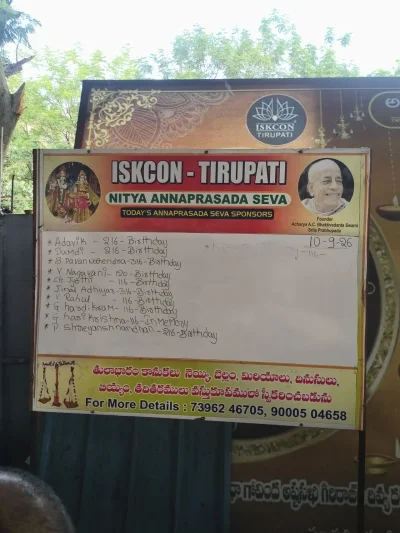 ISKCON
TIRUPATI
ISKCON - TIRUPATI
NITYA ANNAPRASADA SEVA
TODAY'S ANNAPRASADA SEVA SPONSORS
Founder
Acharya A.C. Bhakthivedanta Swami
Srila Prabhupada
10-9-26
* Adavik - 216 - Birthday
- 216 - Birthday
* B. Pavan - 316 - Birthday
* V. Narayan - 120 - Birthday
* Ch. Jyothi - 116 - Birthday
* Adhijay - 316 - Birthday
* V. Rahul - 116 - Birthday
* G. - 116 - Birthday
* G. Krishna - 116 - In Memory
* P. Shreyansh nandhan - 216 - Birthday
తులాభారం కానుకలు నెయ్యి, బెల్లం, మిరియాలు, దినుసులు,
బియ్యం, తదితరములు వస్తురూపములో స్వీకరించబడును
For More Details : 73962 46705, 90005 04658
గోవింద